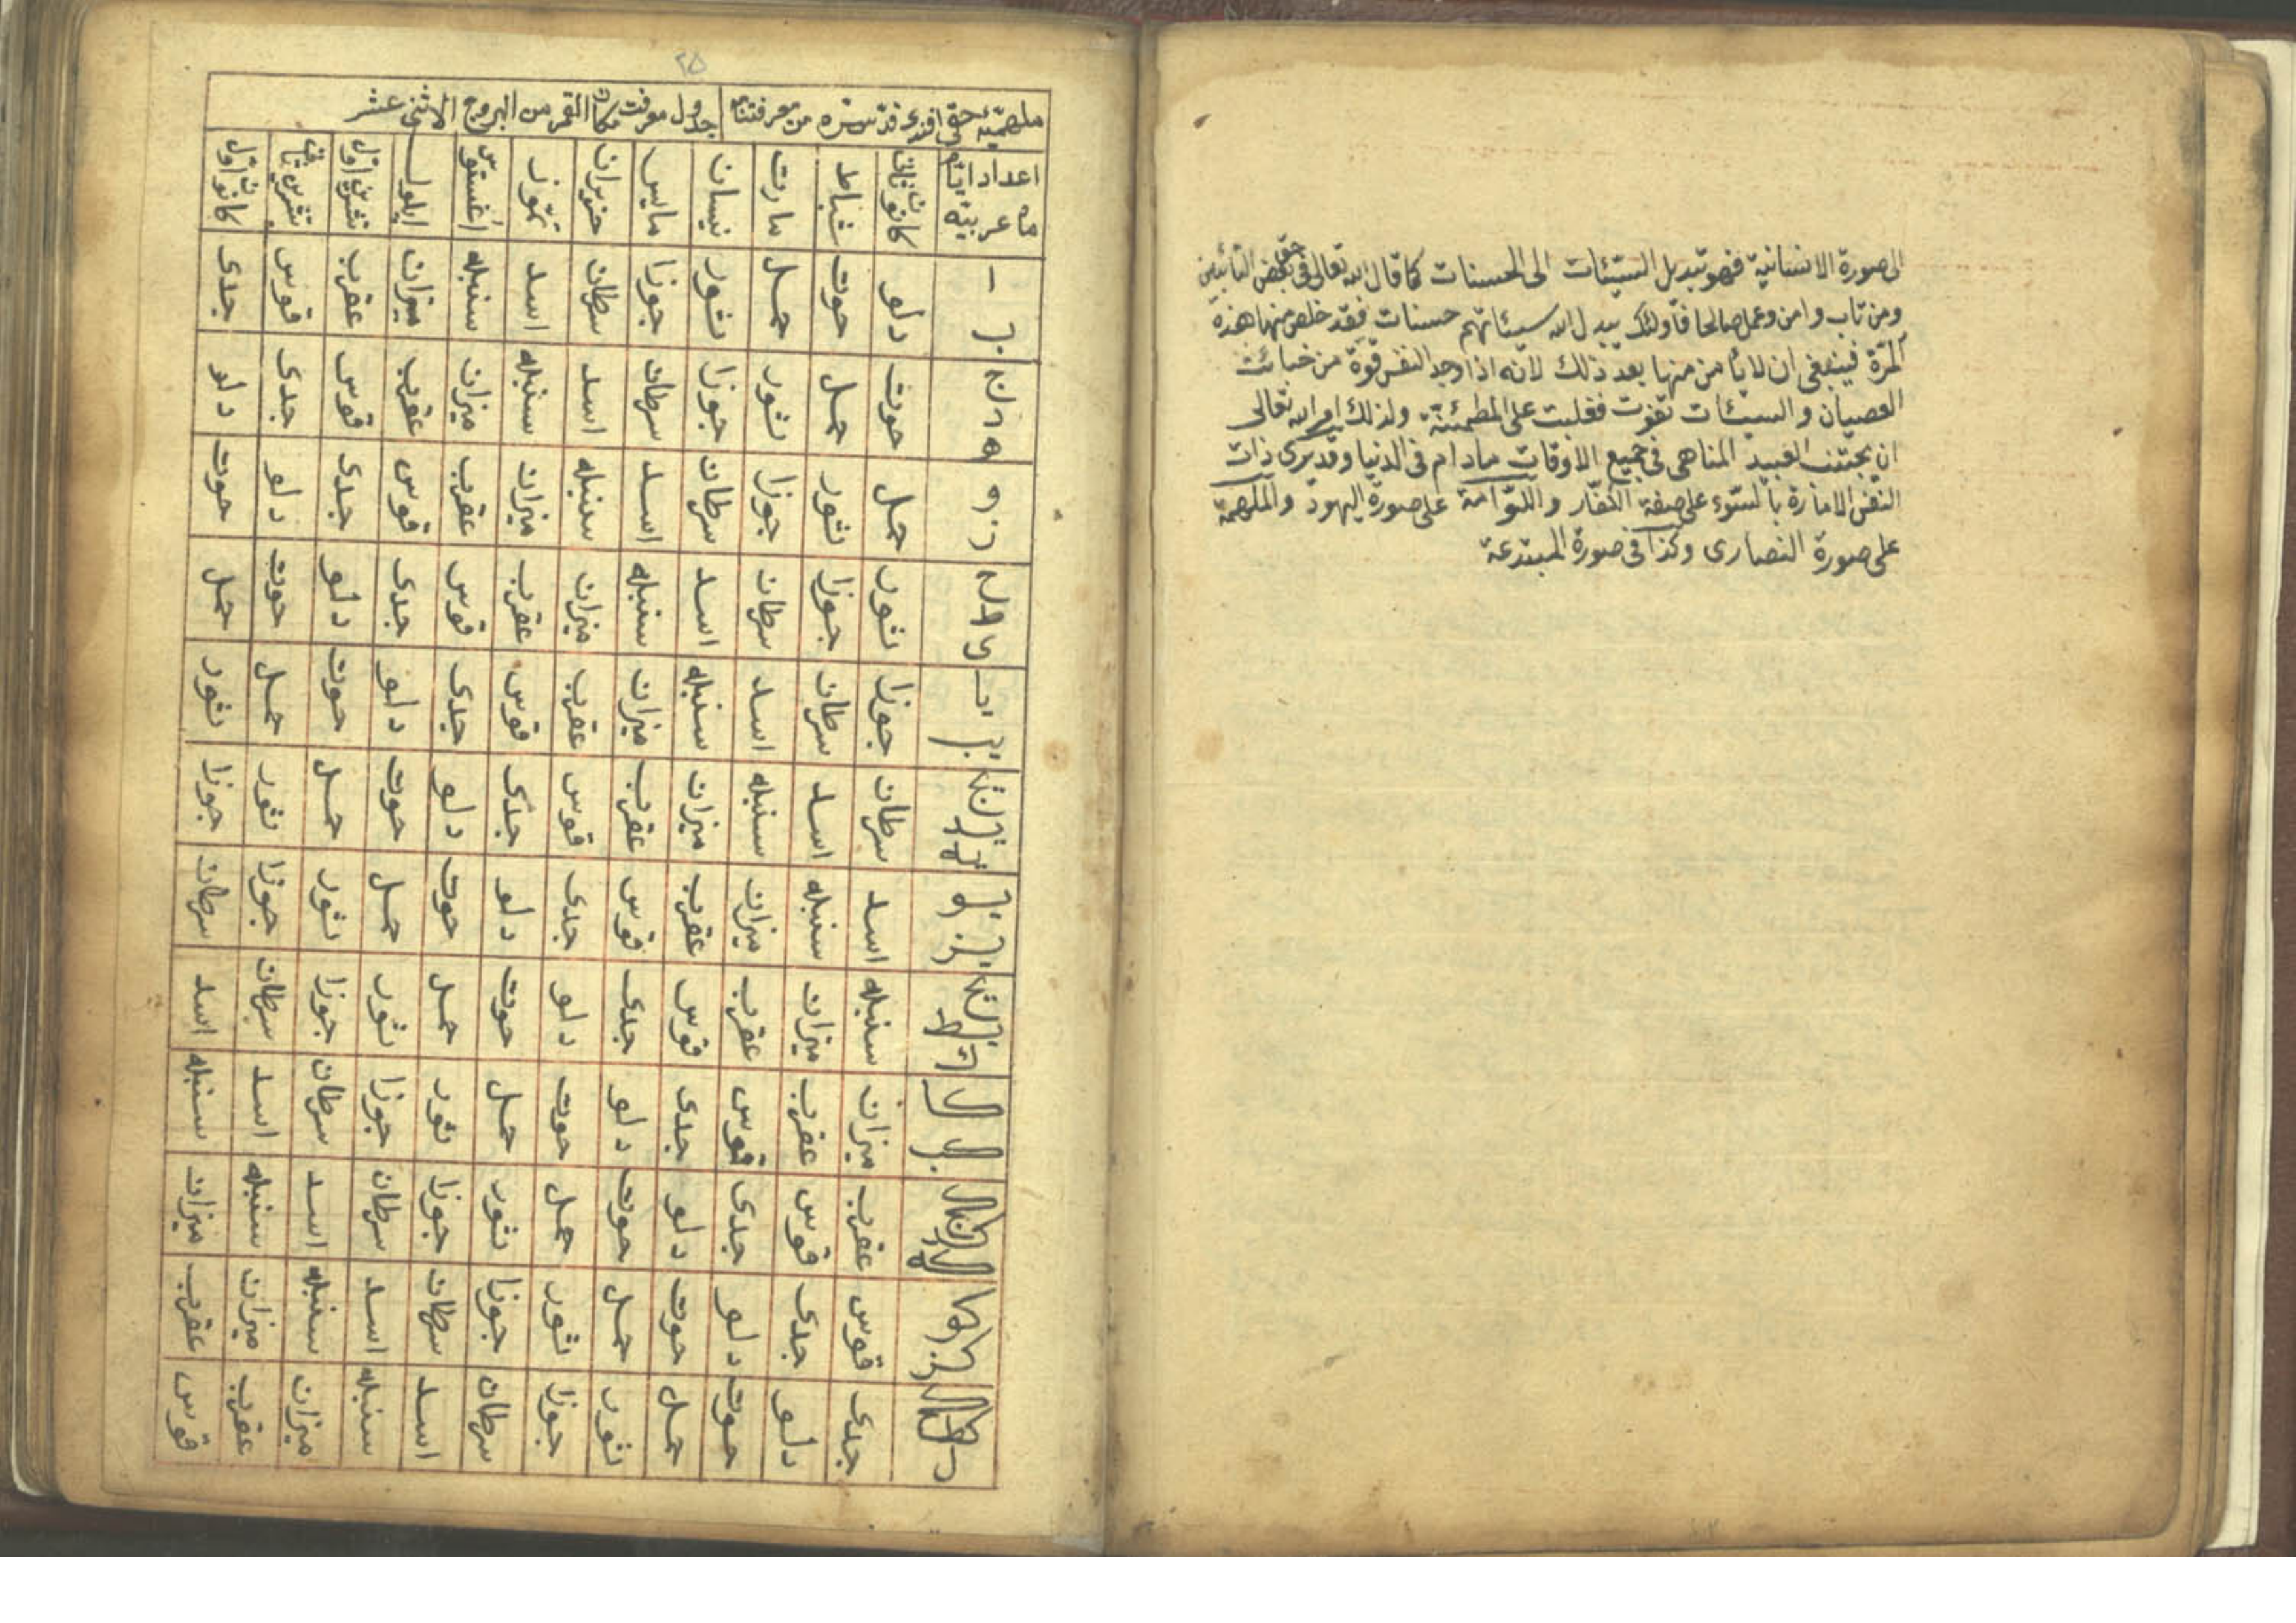 الى صورة الانسانية فهو تبديل السيئات الى الحسنات كما قال الله تعالى فى حق بعض التائبين
ومن تاب وامن وعمل صالحا فاولئك يبدل الله سيئاتهم حسنات فقد خلص منها هذه
المرة فينبغى ان لا يأمن منها بعد ذلك لانه اذا وجد النفس قوة من خبائث
العصيان والسيئات تقوت فغلبت على المطمئنة ولذلك امر الله تعالى
ان يجتنب العبيد المناهى فى جميع الاوقات مادام فى الدنيا وقد يرى ذات
النفس الامارة بالسوء على صفة الكفار واللوامة على صورة اليهود والملهمة
على صورة النصارى وكذا فى صورة المبتدعة
٢٥
ملحمة حقى افندى قدس سره من معرفتنامه جدول معرفت مكان القمر من البروج الاثنى عشر
اعداد ايام ماه عربيه كانون ثانى شباط مارت نيسان مايس حزيران تموز اغستوس ايلول تشرين اول تشرين ثانى كانون اول
دلو حوت حمل ثور جوزا سرطان اسد سنبله ميزان عقرب قوس جدى
حوت حمل ثور جوزا سرطان اسد سنبله ميزان عقرب قوس جدى دلو
حمل ثور جوزا سرطان اسد سنبله ميزان عقرب قوس جدى دلو حوت
ثور جوزا سرطان اسد سنبله ميزان عقرب قوس جدى دلو حوت حمل
جوزا سرطان اسد سنبله ميزان عقرب قوس جدى دلو حوت حمل ثور
سرطان اسد سنبله ميزان عقرب قوس جدى دلو حوت حمل ثور جوزا
اسد سنبله ميزان عقرب قوس جدى دلو حوت حمل ثور جوزا سرطان
سنبله ميزان عقرب قوس جدى دلو حوت حمل ثور جوزا سرطان اسد
ميزان عقرب قوس جدى دلو حوت حمل ثور جوزا سرطان اسد سنبله
عقرب قوس جدى دلو حوت حمل ثور جوزا سرطان اسد سنبله ميزان
قوس جدى دلو حوت حمل ثور جوزا سرطان اسد سنبله ميزان عقرب
جدى دلو حوت حمل ثور جوزا سرطان اسد سنبله ميزان عقرب قوس